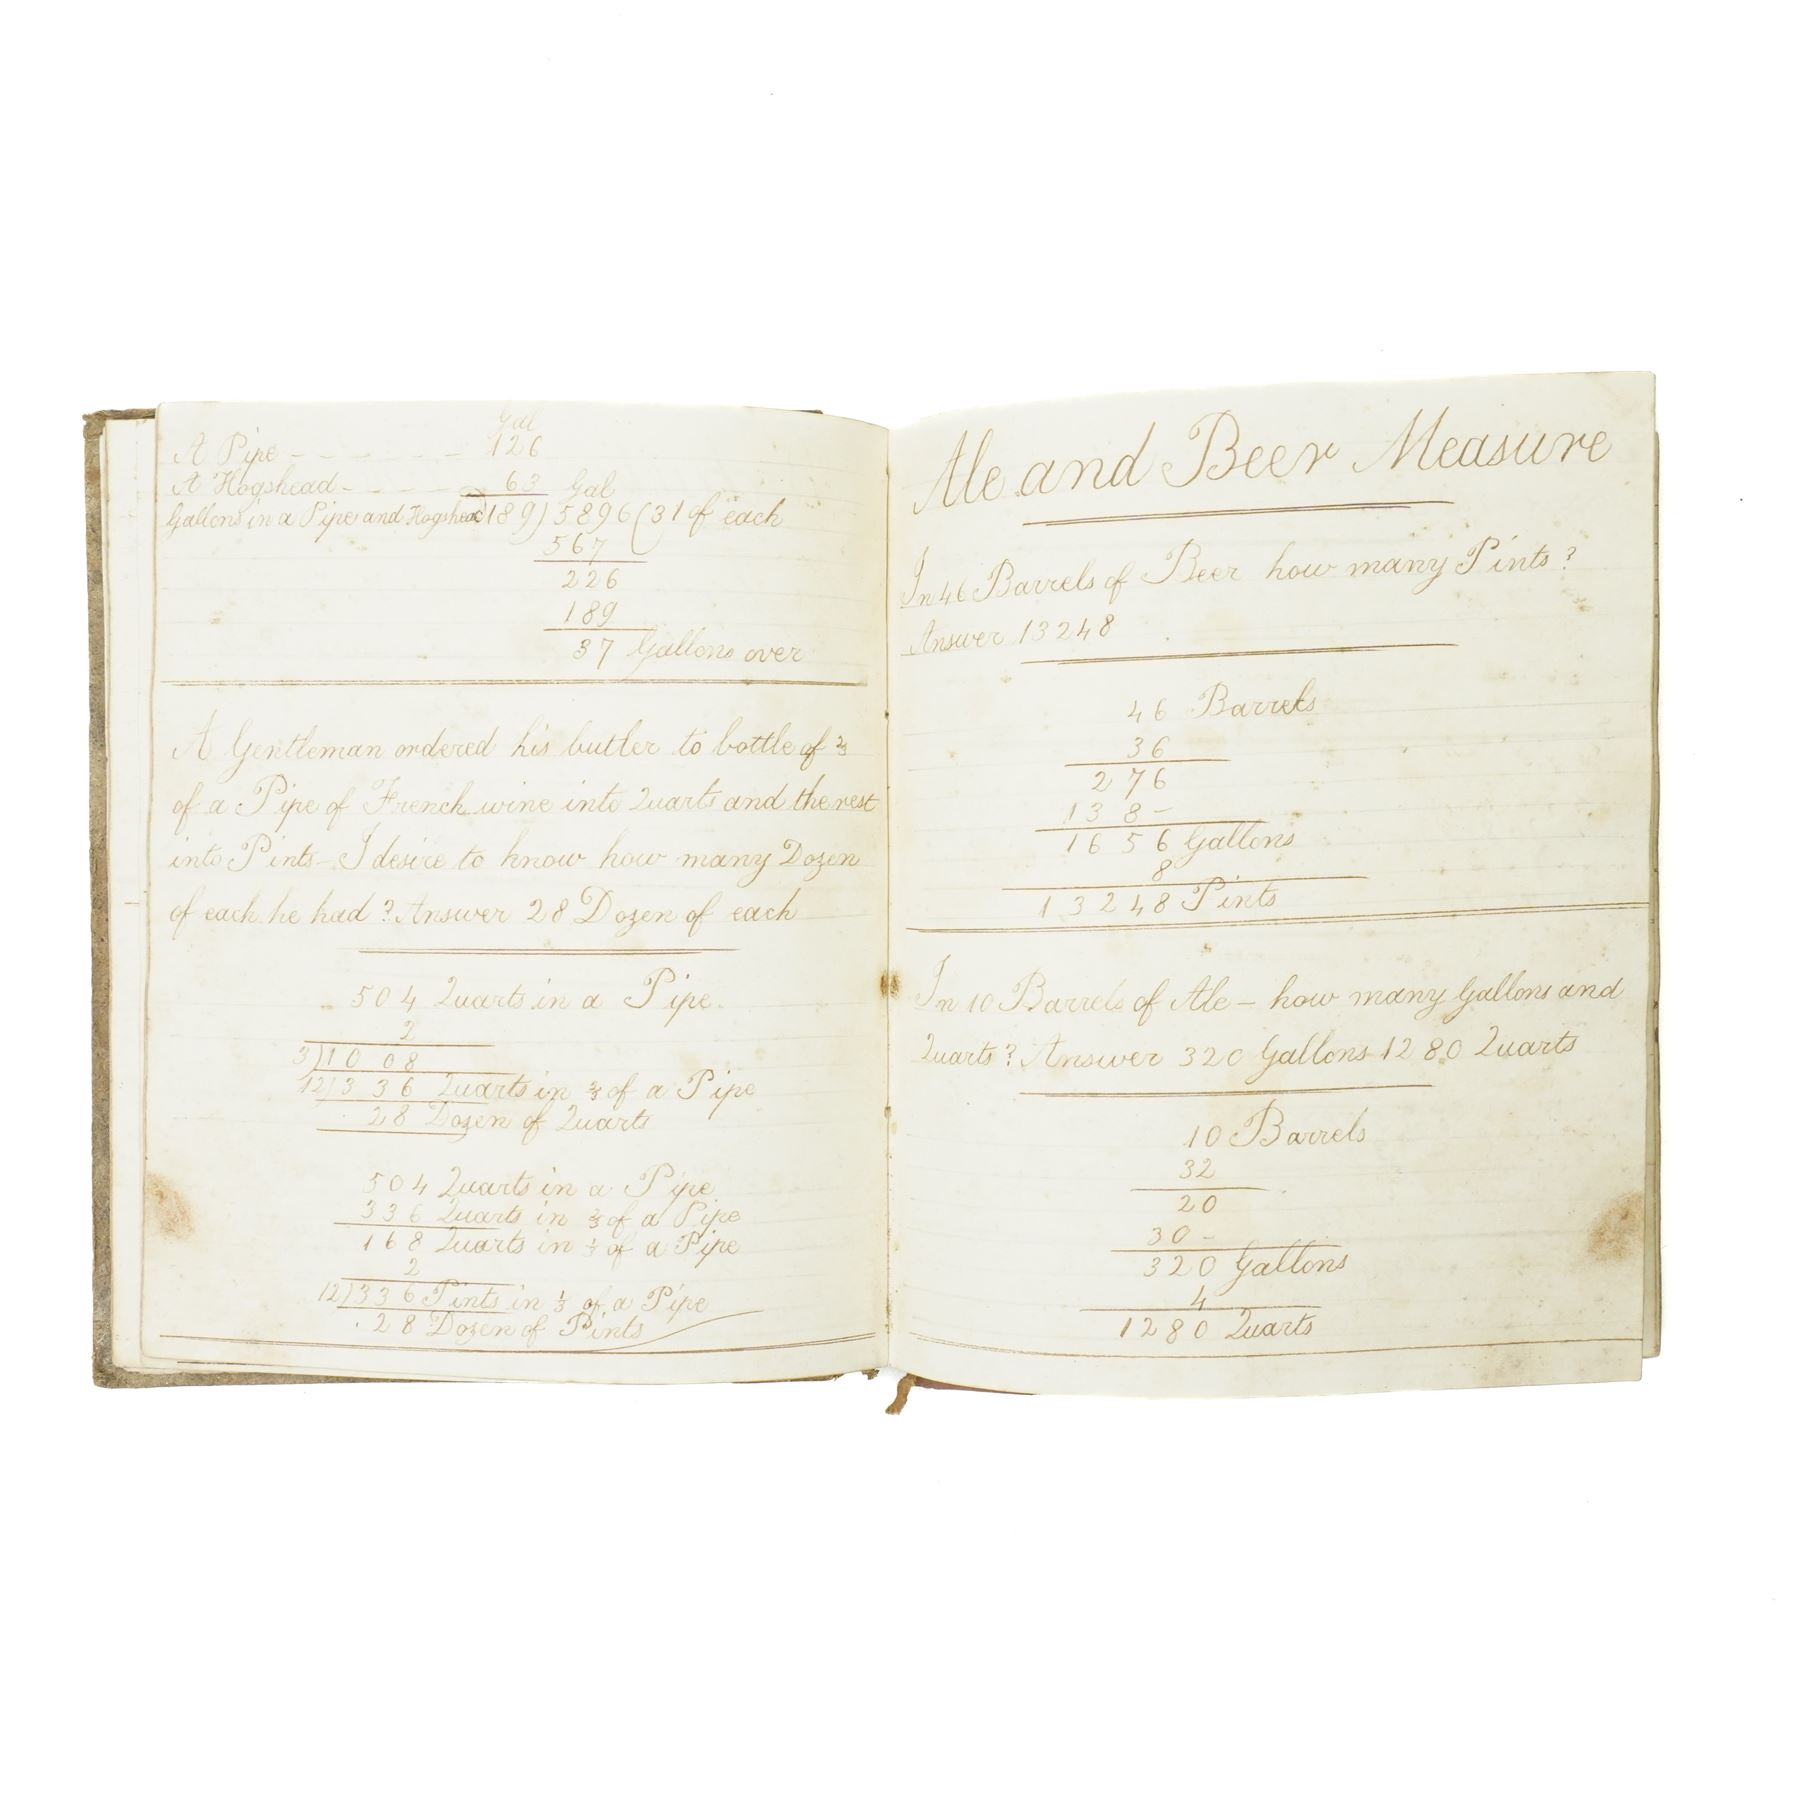 Gal
A Pipe - - - - - - 126
A Hogshead - - - - - 63 Gal
Gallons in a Pipe and Hogshead 189) 5896 (31 of each
567
226
189
37 Gallons over
A Gentleman ordered his butler to bottle of 2/3
of a Pipe of French wine into Quarts and the rest
into Pints - I desire to know how many Dozen
of each he had? Answer 28 Dozen of each
504 Quarts in a Pipe.
2
3)1008
12)336 Quarts in 2/3 of a Pipe
28 Dozen of Quarts
504 Quarts in a Pipe
336 Quarts in 2/3 of a Pipe
168 Quarts in 1/3 of a Pipe
2
12)336 Pints in 1/3 of a Pipe
28 Dozen of Pints
Ale and Beer Measure
In 46 Barrels of Beer how many Pints?
Answer 13248
46 Barrels
36
276
138-
1656 Gallons
8
13248 Pints
In 10 Barrels of Ale - how many Gallons and
Quarts? Answer 320 Gallons 1280 Quarts
10 Barrels
32
20
30-
320 Gallons
4
1280 Quarts